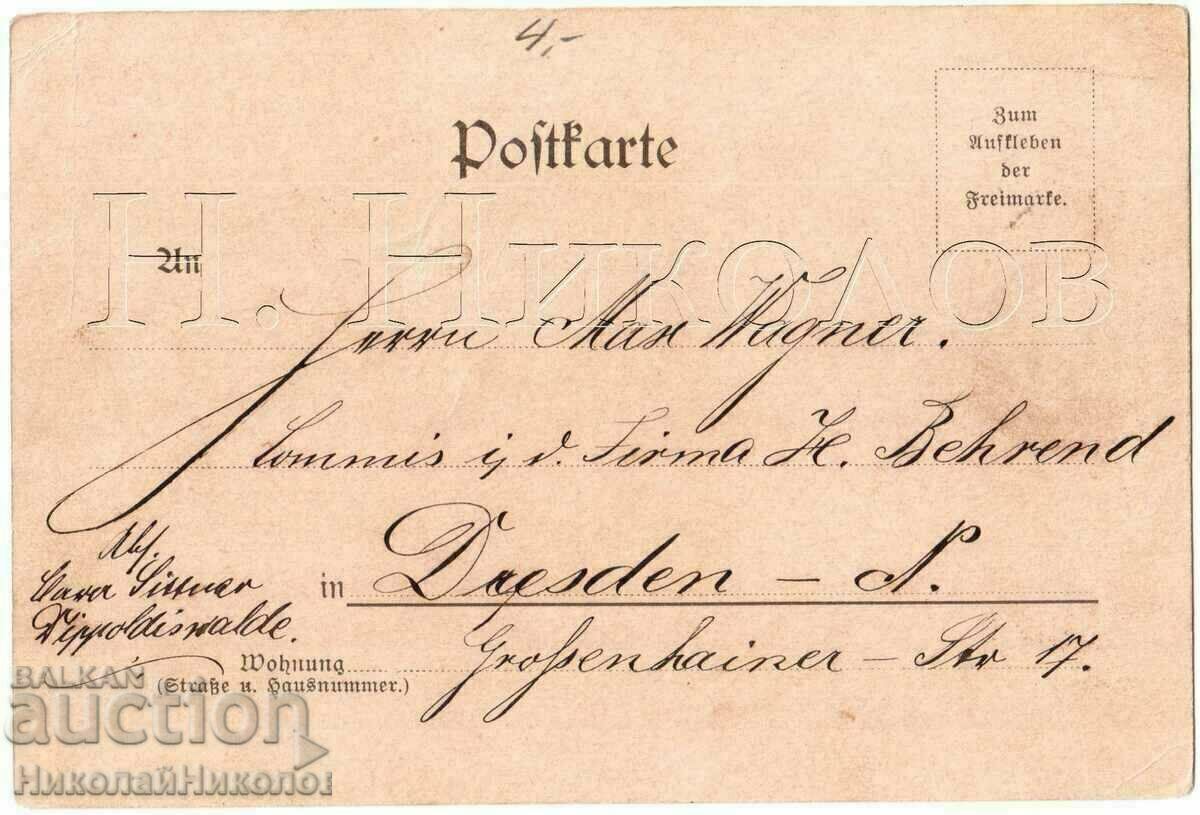 4,-
Postkarte
Zum
Aufkleben
der
Freimarke.
Н. Николов
An
Herrn Max Wagner.
Commis i/ d. Firma H. Behrend
in Dresden – N.
Grossenhainer – Str 17.
Abs.
Clara Sittner
Dippoldiswalde.
Wohnung
(Straße u. Hausnummer.)
BALKAN
auction
НиколайНиколов